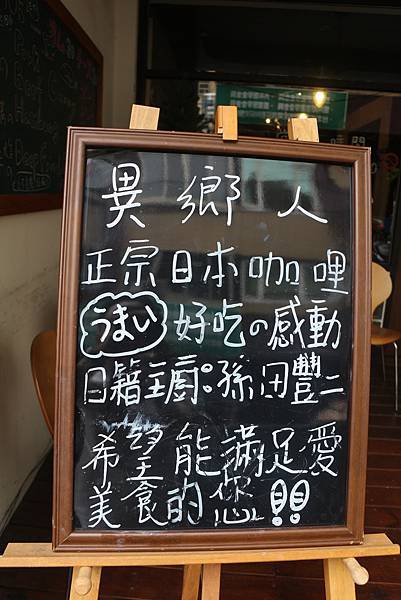 異鄉人
正宗日本咖哩
うまい 好吃の感動
日籍主廚:孫田豐二
希望能滿足愛
美食的您!!